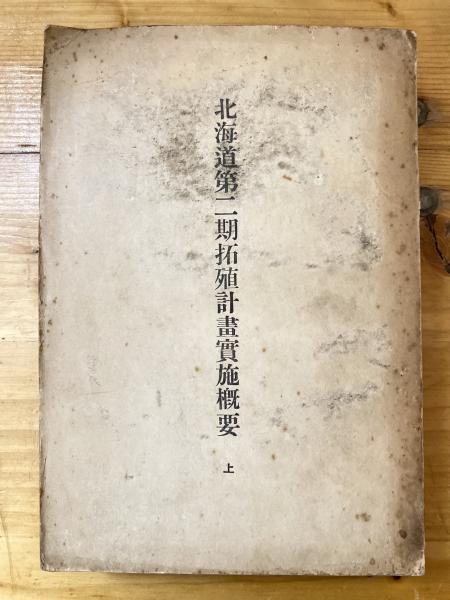 北海道第二期拓殖計畫實施概要
上